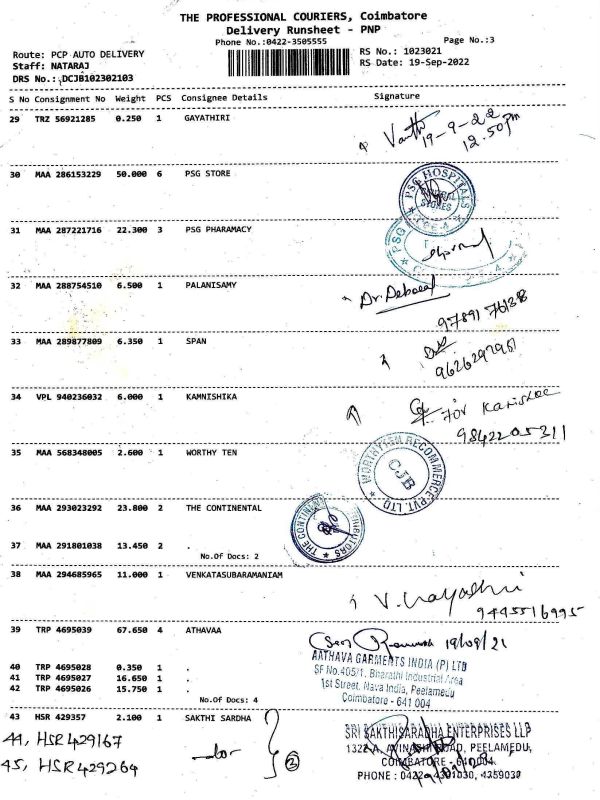 THE PROFESSIONAL COURIERS, Coimbatore
Delivery Runsheet - PNP
Phone No.:0422-3505555
Page No.:3
Route: PCP AUTO DELIVERY
RS No.: 1023021
Staff: NATARAJ
RS Date: 19-Sep-2022
DRS No.: DCJB102302103
S No Consignment No Weight PCS Consignee Details Signature
29 TRZ 56921285 0.250 1 GAYATHIRI
19-9-22
12.50pm
30 MAA 286153229 50.000 6 PSG STORE
PSG HOSPITALS
STORES
31 MAA 287221716 22.300 3 PSG PHARAMACY
PSG
32 MAA 288754510 6.500 1 PALANISAMY
97891 76138
33 MAA 289877809 6.350 1 SPAN
34 VPL 940236032 6.000 1 KAMNISHIKA
For
9842205311
35 MAA 568348005 2.600 1 WORTHY TEN
RECOMMERCE PVT. LTD
CJB
36 MAA 293023292 23.800 2 THE CONTINENTAL
37 MAA 291801038 13.450 2 .
No.Of Docs: 2
38 MAA 294685965 11.000 1 VENKATASUBARAMANIAM
9445516995
39 TRP 4695039 67.650 4 ATHAVAA
19/09/21
40 TRP 4695028 0.350 1 .
41 TRP 4695027 16.650 1 .
42 TRP 4695026 15.750 1 .
No.Of Docs: 4
AATHAVA GARMENTS INDIA (P) LTD
SF No.405/1, Bharathi Industrial Area
1st Street, Nava India, Peelamedu
Coimbatore - 641 004
43 HSR 429357 2.100 1 SAKTHI SARDHA
44, HSR429167
45, HSR429264
3
SRI SAKTHISARADHA ENTERPRISES LLP
1322 A, AVINASHI ROAD, PEELAMEDU,
COIMBATORE - 641004.
PHONE : 0422-4301030, 4359030